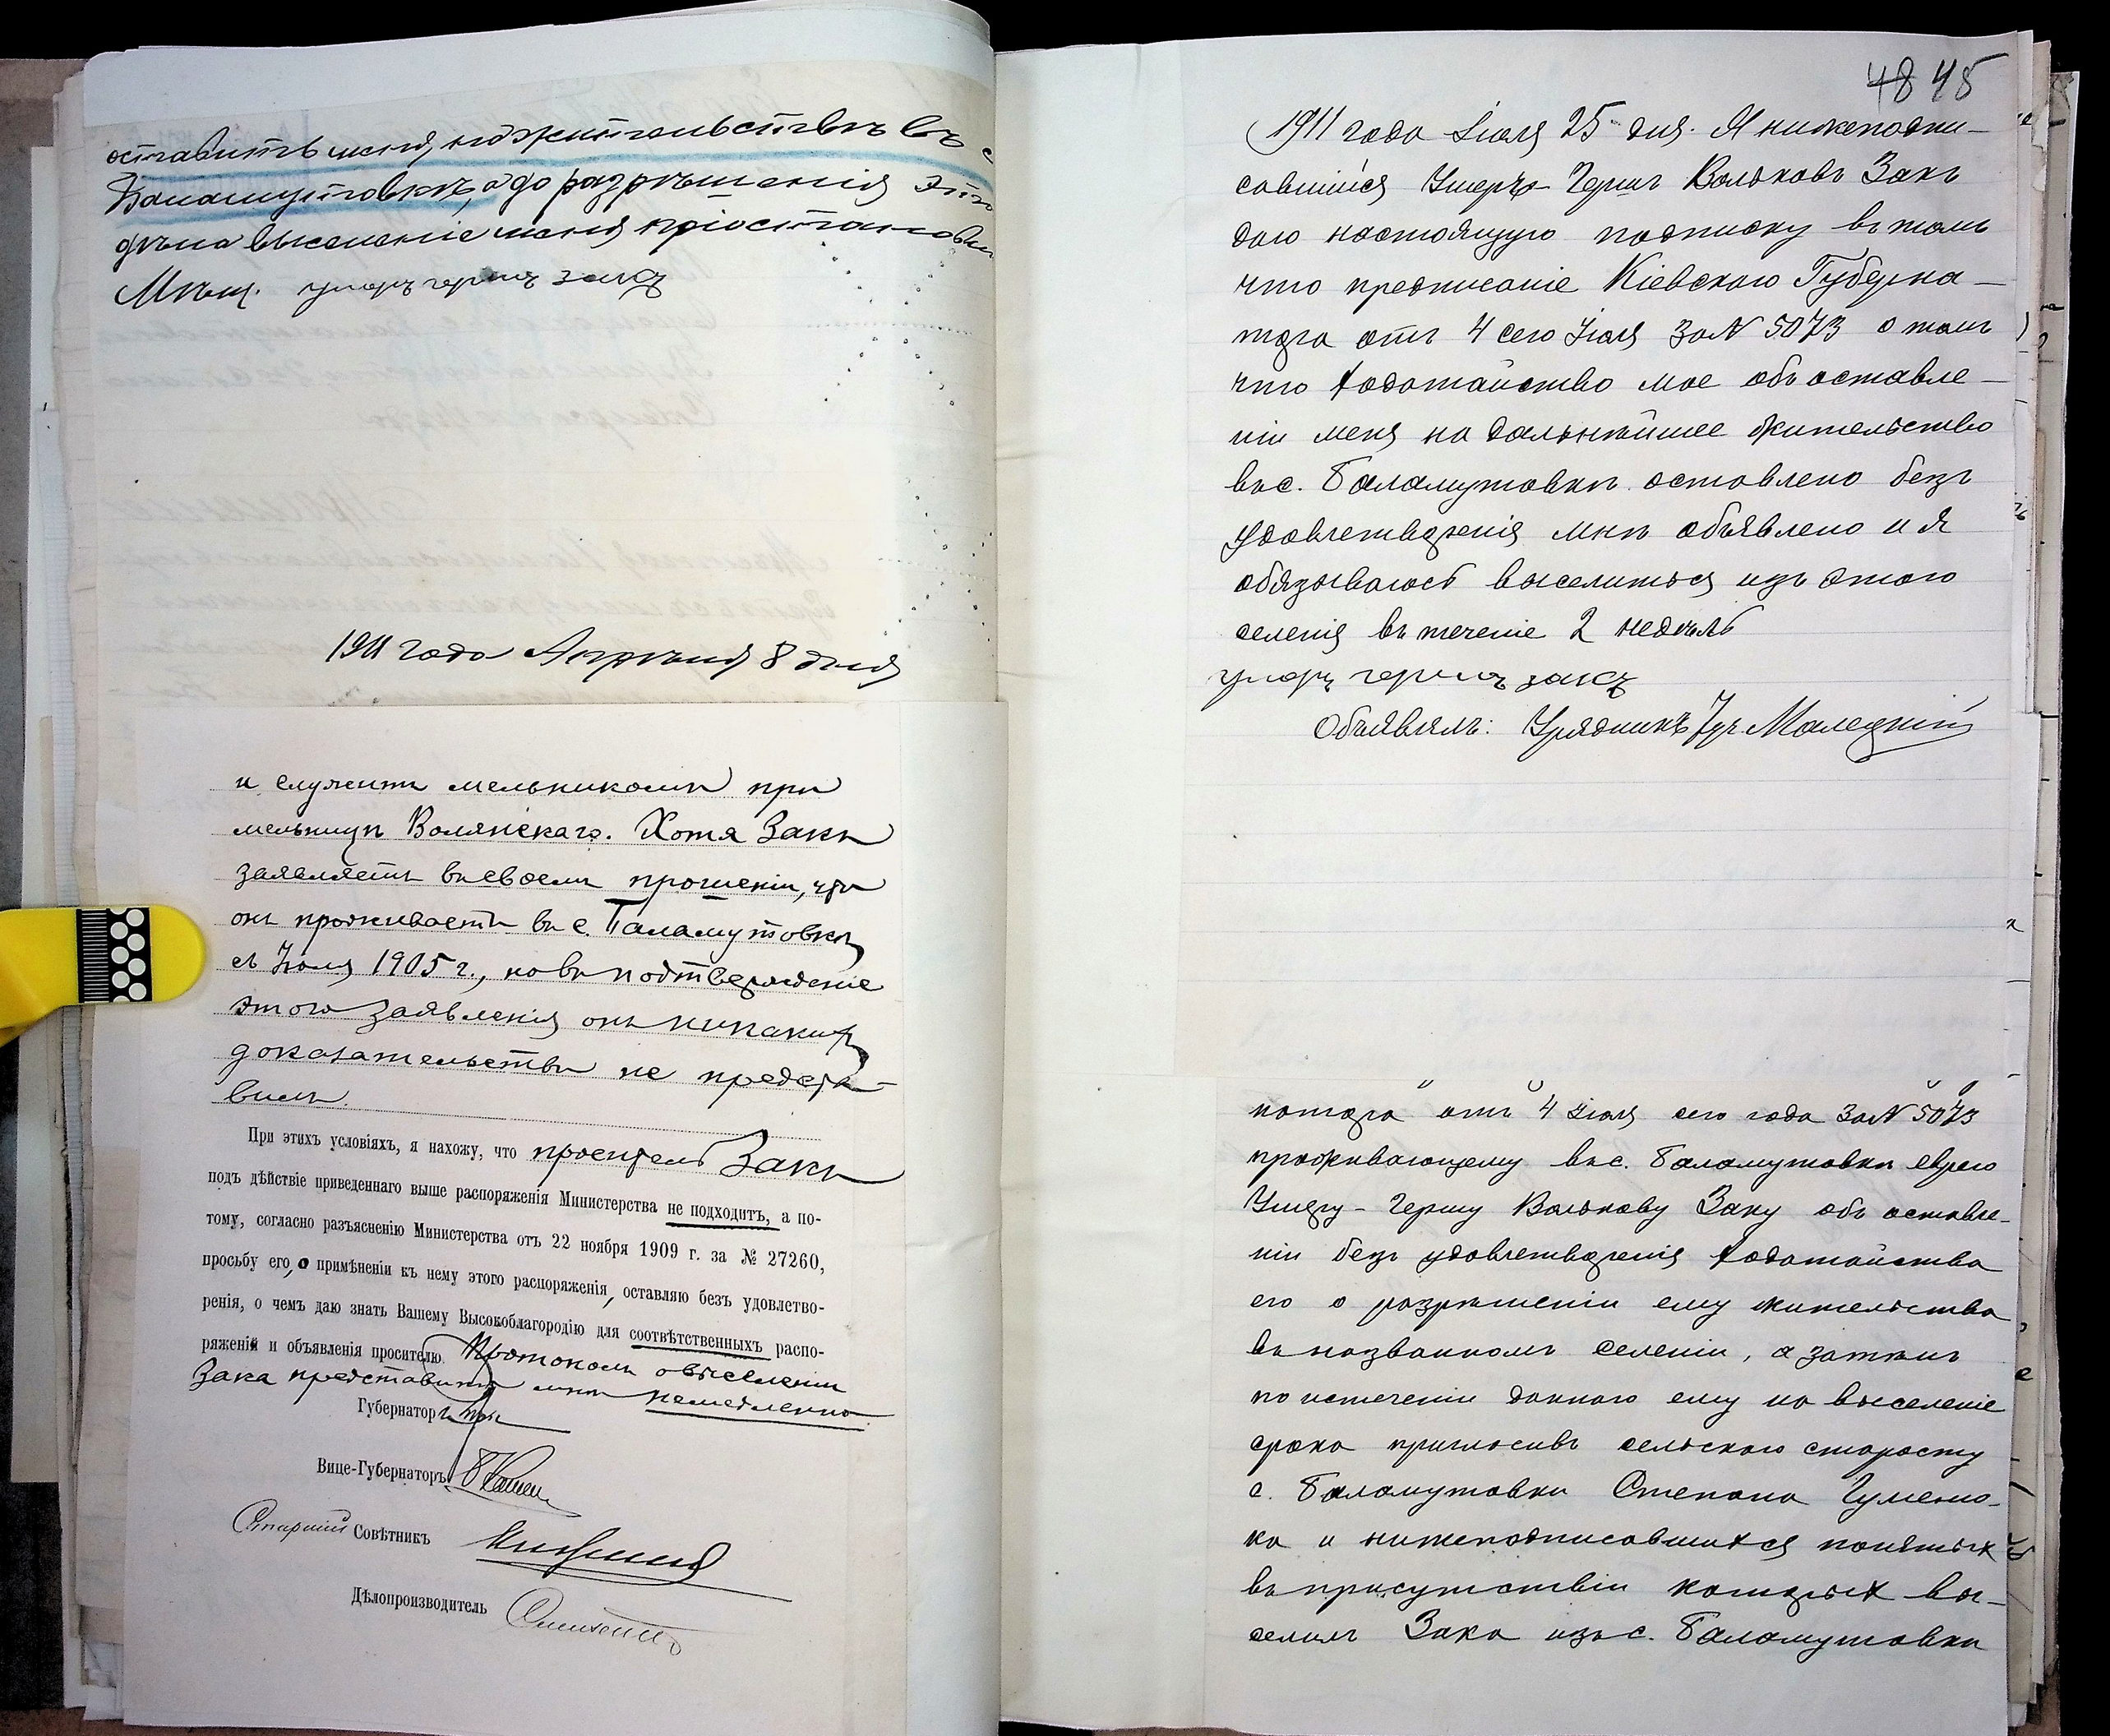 оставить меня, на жительствѣ въ с
Баламутовкѣ, а до разрѣшенія этого
дѣла выселеніе меня пріостанови
Мѣщ. умеръ герш закъ
1911 года Апрѣля 8 дня
и служитъ мельникомъ при
мельницѣ Волянскаго. Хотя Закъ
заявляетъ въ своемъ прошеніи, что
онъ проживаетъ въ с. Баламутовкѣ
съ Іюля 1905 г., но въ подтвержденіе
этого заявленія онъ никакихъ
доказательствъ не предста-
вилъ.
При этихъ условіяхъ, я нахожу, что проситель Закъ
подъ дѣйствіе приведеннаго выше распоряженія Министерства не подходитъ, а по-
тому, согласно разъясненію Министерства отъ 22 ноября 1909 г. за № 27260,
просьбу его, о примѣненіи къ нему этого распоряженія, оставляю безъ удовлетво-
ренія, о чемъ даю знать Вашему Высокоблагородію для соотвѣтственныхъ распо-
ряженій и объявленія просителю. Протоколъ о выселеніи
Зака представить мнѣ немедленно
Губернаторъ
Вице-Губернаторъ
Старшій Совѣтникъ
Дѣлопроизводитель
48 45
1911 года Іюля 25 дня. Я нижеподпи-
савшійся Умеръ-Гершъ Вольковъ Закъ
даю настоящую подписку въ томъ
что предписаніе Кіевскаго Губерна-
тора отъ 4 сего Іюля за N 5073 о томъ
что ходатайство мое объ оставле-
ніи меня на дальнѣйшее жительство
въ с. Баламутовкѣ оставлено безъ
удовлетворенія мнѣ объявлено и я
обязываюсь выселиться изъ этого
селенія въ теченіе 2 недѣль
умеръ гершъ закъ
Объявлялъ: Урядникъ Малецкій
натора отъ 4 Іюля сего года за N 5073
проживающему въ с. Баламутовкѣ еврею
Умеру-Гершу Волькову Заку объ оставле-
ніи безъ удовлетворенія ходатайства
его о разрѣшеніи ему жительства
въ названномъ селеніи, а затѣмъ
по истеченіи даннаго ему на выселеніе
срока пригласивъ сельскаго старосту
с. Баламутовки Степана Гумено-
ка и нижеподписавшихся понятыхъ
въ присутствіи которыхъ вы-
селилъ Зака изъ с. Баламутовки